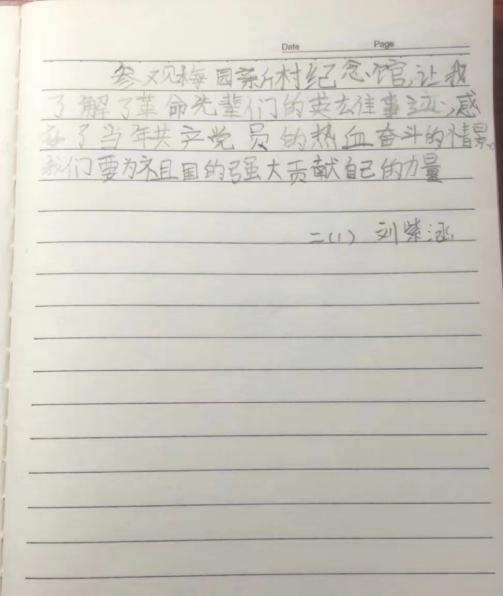 Date Page
参观梅园新村纪念馆,让我
了解了革命先辈们的英雄事迹,感
受了当年共产党员的热血奋斗的情景。
我们要为祖国的强大贡献自己的力量
二(1) 刘紫涵